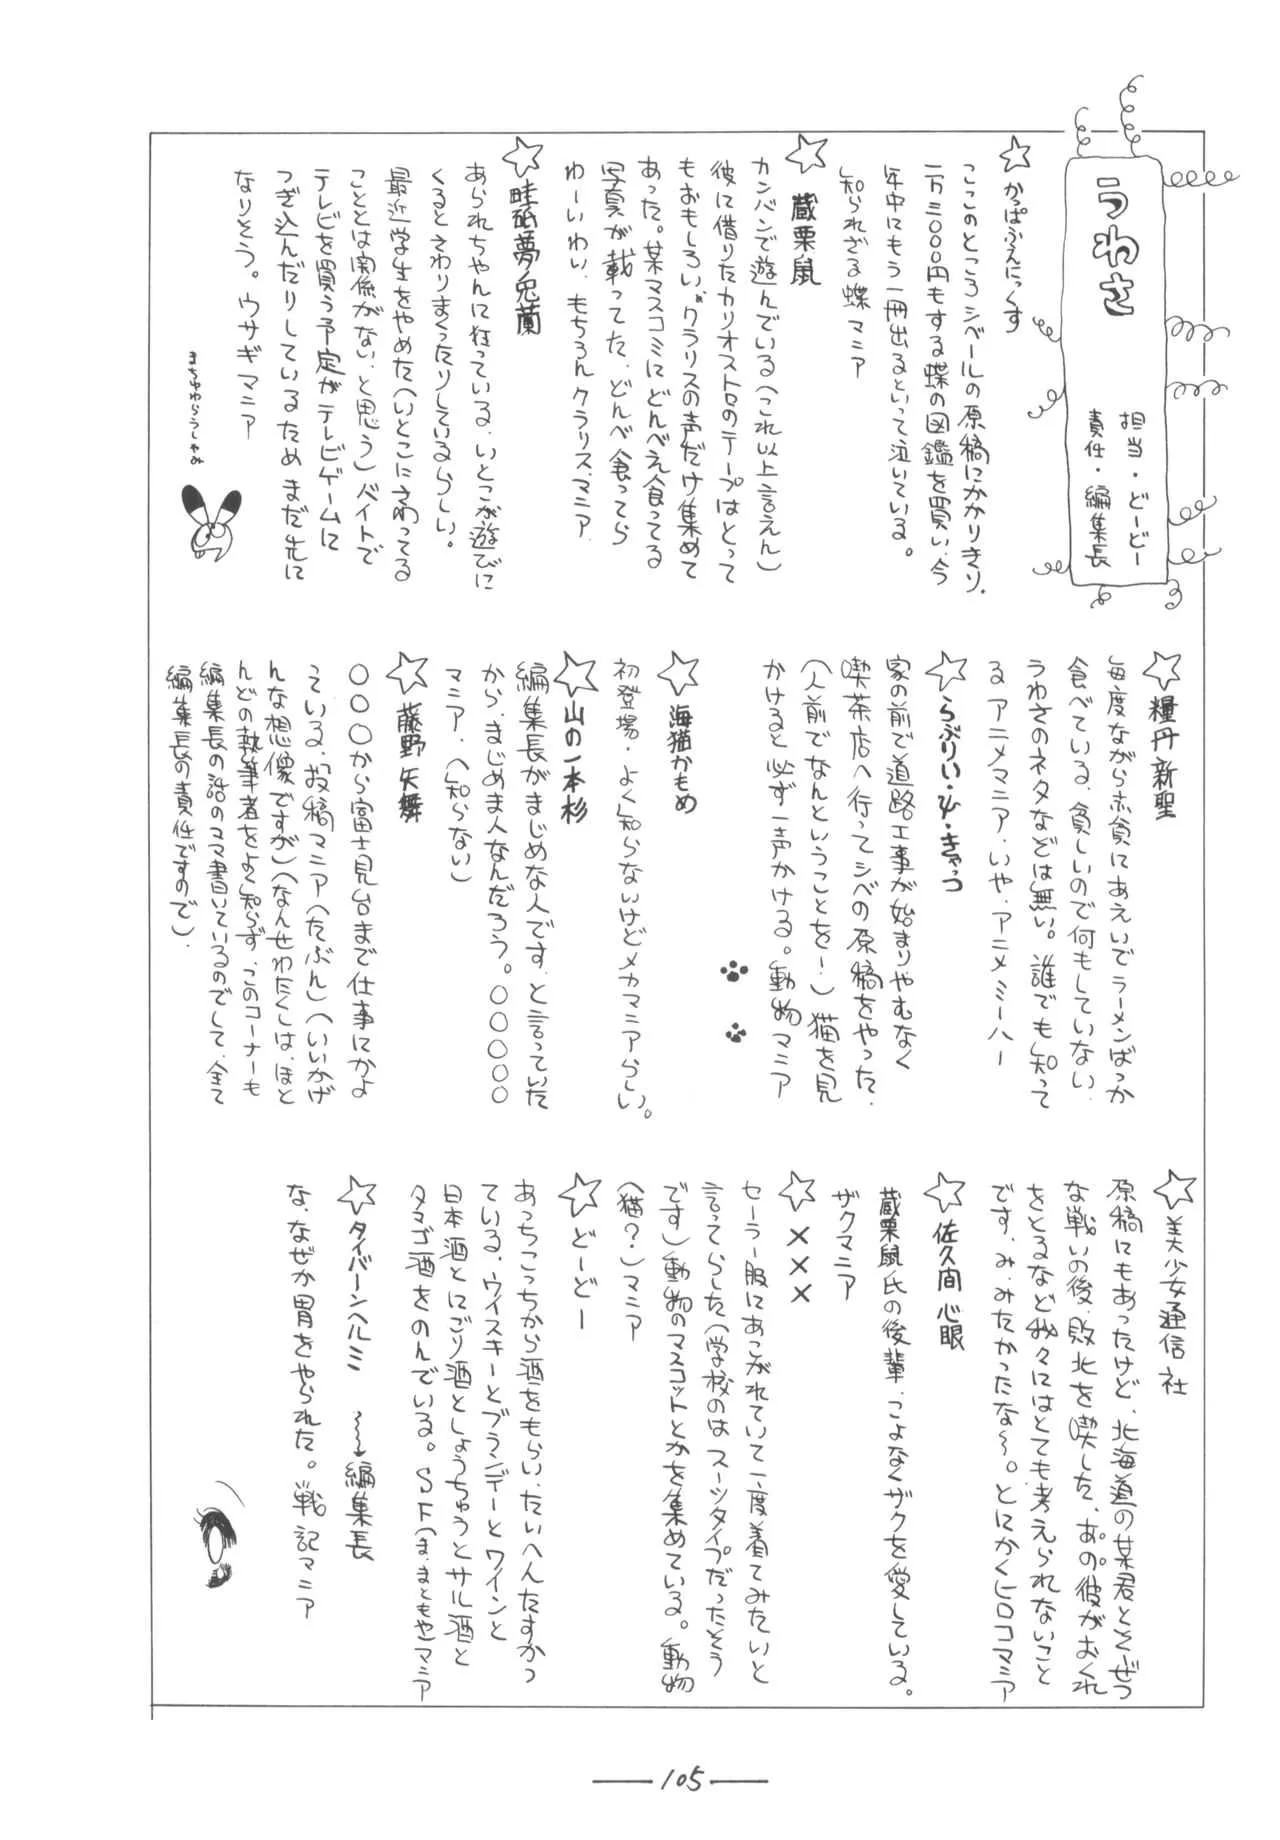 うわさ
担当・どーどー
責任・編集長
かっぱふぇにっくす
ここのところシベールの原稿にかかりきり、
二万三〇〇〇円もする蝶の図鑑を買い、今
年中にもう一冊出るといって泣いている。
知られざる蝶マニア
蔵栗鼠
カンバンで遊んでいる(これ以上言えん)
彼に借りたカリオストロのテープはとって
もおもしろい。クラリスの声だけ集めて
あった。某マスコミにどんべえ食ってる
写真が載ってた、どんべ食ってら
わーいわい、もちろんクラリス・マニア
畦砥夢兎蘭
あられちゃんに狂っている、いとこが遊びに
くるとさわりまくったりしているらしい。
最近学生をやめた(いとこにさわってる
こととは関係がない、と思う)バイトで
テレビを買う予定がテレビゲームに
つぎ込んだりしているためまだ先に
なりそう。ウサギマニア
まちゅわらうしゃみ
糧丹新聖
毎度ながら赤貧にあえいでラーメンばっか
食べている、貧しいので何もしていない、
うわさのネタなどは無い。誰でも知って
るアニメマニア、いや、アニメミーハー
らぶりい・ψ・きゃっつ
家の前で道路工事が始まりやむなく
喫茶店へ行ってシベの原稿をやった、
(人前でなんということを!)猫を見
かけると必ず一声かける。動物マニア
海猫かもめ
初登場・よく知らないけどメカマニアらしい。
山の一本杉
編集長がまじめな人です、と言っていた
から、まじめ人なんだろう。〇〇〇〇〇
マニア、(知らない)
藤野矢舞
〇〇〇から富士見台まで仕事にかよ
っている、投稿マニア(たぶん)(いいかげ
んな想像ですが)(なんせわたくしは、ほと
んどの執筆者をよく知らず、このコーナーも
編集長の話のママ書いているのでして、全て
編集長の責任ですので)、
美少女通信社
原稿にもあったけど、北海道の某君とそぜつ
な戦いの後、敗北を喫した、あの彼がおくれ
をとるなど我々にはとても考えられないこと
です、み、みたかったな〜。とにかくヒロコマニア
佐久間心眼
蔵栗鼠氏の後輩、こよなくザクを愛している。
ザクマニア
×××
セーラー服にあこがれていて一度着てみたいと
言ってらした(学校のはスーツタイプだったそう
です)動物のマスコットとかを集めている。動物
(猫?)マニア
どーどー
あっちこっちから酒をもらい、たいへんたすかっ
ている、ウイスキーとブランデーとワインと
日本酒とにごり酒としょうちゅうとサル酒と
タマゴ酒をのんでいる。SF(ま、まともや)マニア
タイバーンヘルミ 〜〜 編集長
な、なぜか胃をやられた。戦記マニア
105